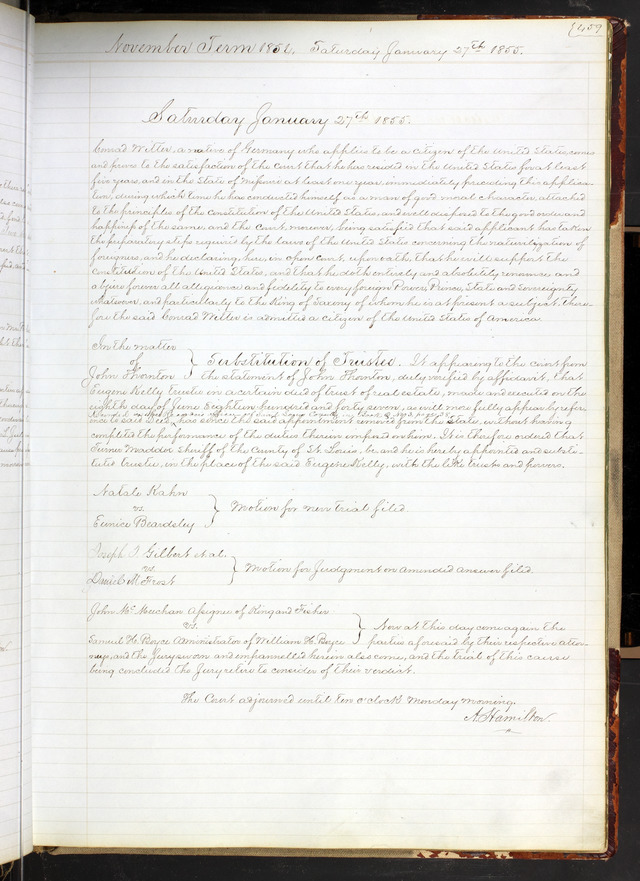 459
November Term 1854. Saturday January 27th 1855.
Saturday January 27th 1855.
Conrad Witter, a native of Germany who applies to be a citizen of the United States, comes
and proves to the satisfaction of the Court that he has resided in the United States for at least
five years, and in the State of Missouri at least one year, immediately preceding this applica-
tion, during which time he has conducted himself as a man of good moral character, attached
to the principles of the Constitution of the United States, and well disposed to the good order and
happiness of the same, and the Court, moreover, being satisfied that said applicant has taken
the preparatory steps required by the laws of the United States concerning the naturalization of
foreigners, and he declaring, here, in open court, upon oath, that he will support the
Constitution of the United States, and that he doth entirely and absolutely renounce and
abjure forever all allegiance and fidelity to every foreign Power, Prince, State and Sovereignty
whatsoever, and particularly to the King of Saxony of whom he is at present a subject. There-
fore the said Conrad Witter is admitted a citizen of the United States of America
In the matter
of
John Thornton
Substitution of Trustee. It appearing to the court from
the statement of John Thornton, duly verified by affidavit, that
Eugene Kelly trustee in a certain deed of trust of real estate, made and executed on the
eighth day of June Eighteen hundred and forty seven, as will more fully appear by refer-
ence to said Deed, has since the said appointment removed from the State, without having
completed the performance of the duties therein imposed on him. It is therefore ordered that
Turner Maddox Sheriff of the County of St. Louis, be and he is hereby appointed and substi-
tuted trustee, in the place of the said Eugene Kelly, with the like trusts and powers.
Natale Kahn
vs.
Eunice Beardsley
Motion for new trial filed.
Joseph J Gilbert et al.
vs.
Daniel M Frost
Motion for Judgment on amended answer filed.
John McMechan Assignee of King and Fisher
vs.
Samuel H. Boyce Administrator of William H. Boyce
Now at this day come again the
parties aforesaid by their respective attor-
neys, and the Jury sworn and empannelled herein also come, and the trial of this cause
being concluded the Jury retire to consider of their verdict.
The Court adjourned until ten o'clock Monday morning.
A. Hamilton.